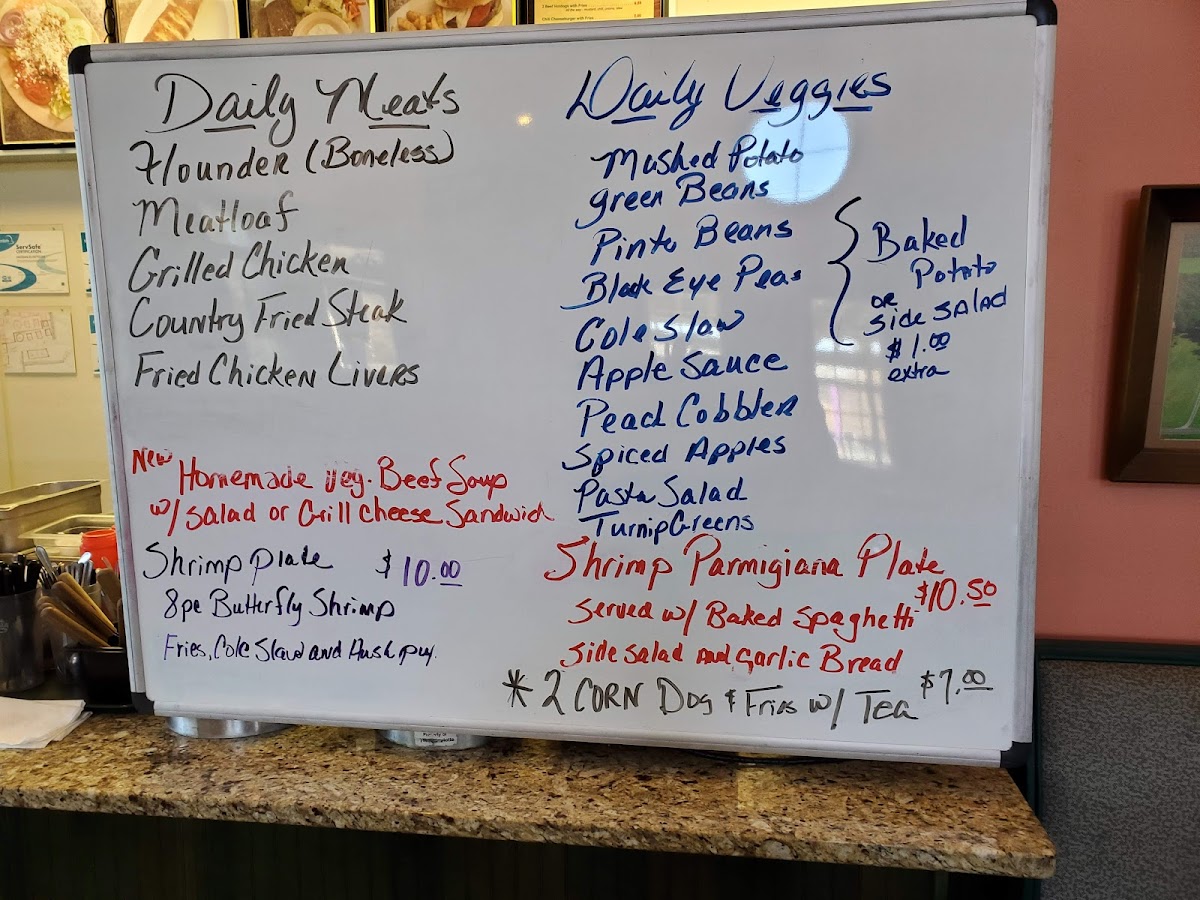 Daily Meats
Flounder (Boneless)
Meatloaf
Grilled Chicken
Country Fried Steak
Fried Chicken Livers
New Homemade Veg. Beef Soup
w/ Salad or Grill Cheese Sandwich
Shrimp Plate $10.00
8pc Butterfly Shrimp
Fries, Cole Slaw and Hush puy.
Daily Veggies
Mashed Potato
green Beans
Pinto Beans
Black Eye Peas
Cole Slaw
Apple Sauce
Peach Cobbler
Spiced Apples
Pasta Salad
Turnip Greens
Baked
Potato
or
Side SALAD
$1.00
extra
Shrimp Parmigiana Plate
$10.50
Served w/ Baked Spaghetti
Side Salad and Garlic Bread
* 2 CORN Dog & Fries w/ Tea $7.00
ServSafe